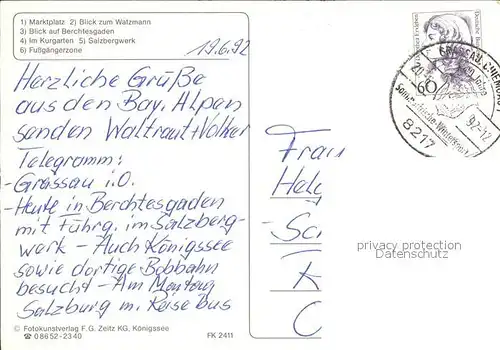 1) Marktplatz 2) Blick zum Watzmann
3) Blick auf Berchtesgaden
4) Im Kurgarten 5) Salzbergwerk
6) Fußgängerzone
19.6.92
Herzliche Grüße
aus den Bay. Alpen
senden Waltraut + Volker
Telegramm:
- Grassau i.O.
- Heute in Berchtesgaden
mit Führg. im Salzberg-
werk - Auch Königssee
sowie dortige Bobbahn
besucht - Am Montag
Salzburg m. Reisebus
© Fotokunstverlag F.G. Zeitz KG, Königssee
☎ 08652-2340
FK 2411
60
8217
Frau
privacy protection
Datenschutz